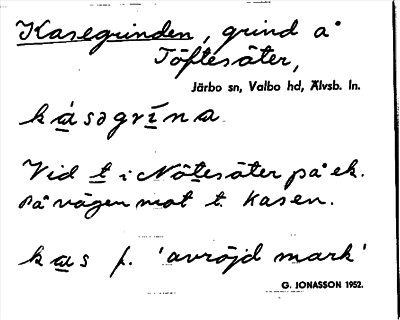 Kasegrinden, grind å
Töftesäter,
Järbo sn, Valbo hd, Älvsb. ln.
kásəgrína
Vid t i Nötesäter på ek.
på vägen mot t. Kasen.
kas f. 'avröjd mark'
G. JONASSON 1952.